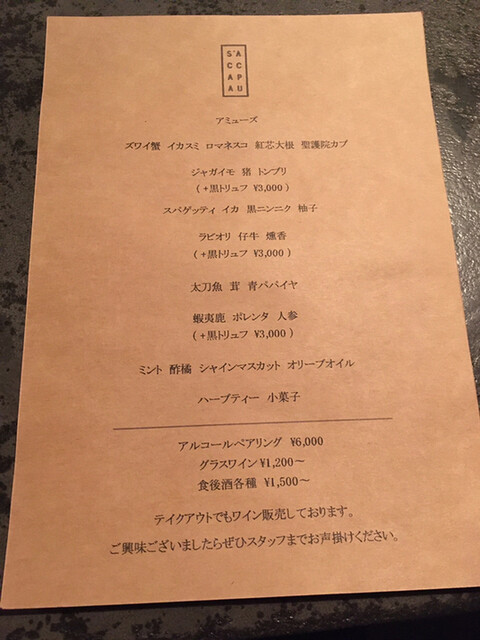 S'ACCAPAU
アミューズ
ズワイ蟹 イカスミ ロマネスコ 紅芯大根 聖護院カブ
ジャガイモ 猪 トンブリ
( +黒トリュフ ¥3,000 )
スパゲッティ イカ 黒ニンニク 柚子
ラビオリ 仔牛 燻香
( +黒トリュフ ¥3,000 )
太刀魚 茸 青パパイヤ
蝦夷鹿 ポレンタ 人参
( +黒トリュフ ¥3,000 )
ミント 酢橘 シャインマスカット オリーブオイル
ハーブティー 小菓子
アルコールペアリング ¥6,000
グラスワイン ¥1,200～
食後酒各種 ¥1,500～
テイクアウトでもワイン販売しております。
ご興味ございましたらぜひスタッフまでお声掛けください。